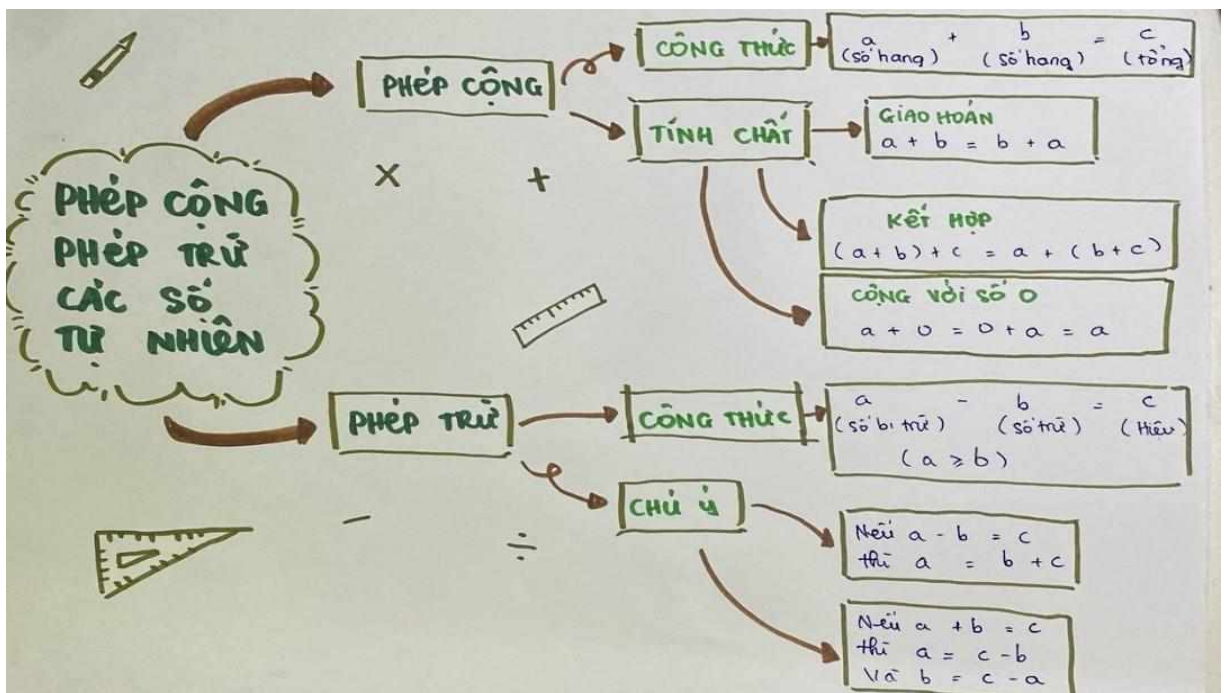 PHÉP CỘNG
PHÉP TRỪ
CÁC SỐ
TỰ NHIÊN
PHÉP CỘNG
CÔNG THỨC
a + b = c
(số hạng) (số hạng) (tổng)
TÍNH CHẤT
GIAO HOÁN
a + b = b + a
KẾT HỢP
(a + b) + c = a + (b + c)
CỘNG VỚI SỐ 0
a + 0 = 0 + a = a
× +
PHÉP TRỪ
CÔNG THỨC
a - b = c
(số bị trừ) (số trừ) (Hiệu)
(a ⩾ b)
CHÚ Ý
Nếu a - b = c
thì a = b + c
Nếu a + b = c
thì a = c - b
Và b = c - a
− ÷